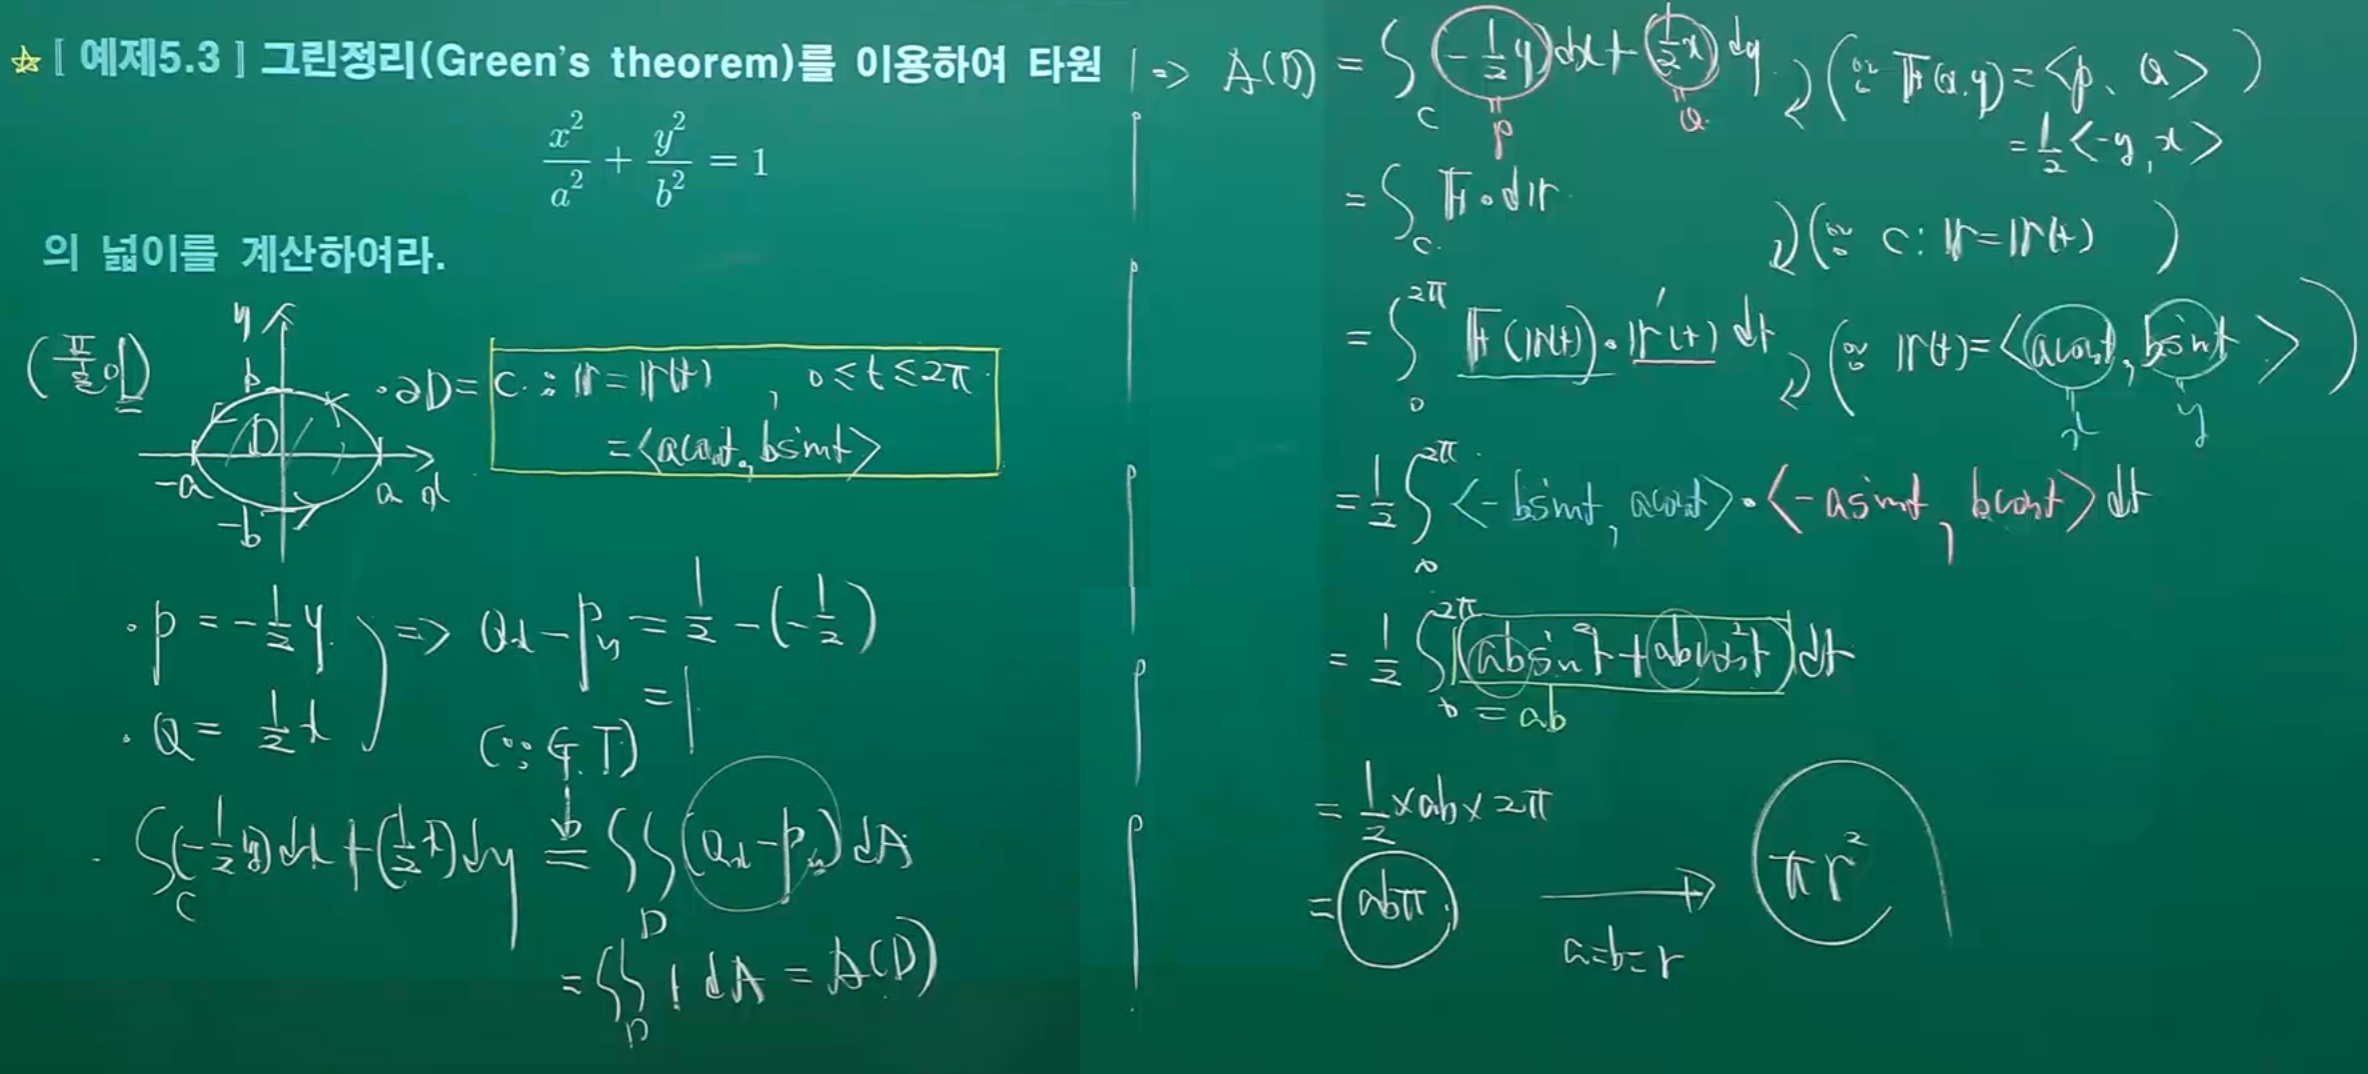 ☆[예제5.3] 그린정리(Green's theorem)를 이용하여 타원
x²/a² + y²/b² = 1
의 넓이를 계산하여라.
(풀이)
y
b
D
-a
a x
-b
· ∂D = C : r = r(t) , 0 ≤ t ≤ 2π
= <acost, bsint>
· P = -1/2 y
· Q = 1/2 x
=> Qx - Py = 1/2 - (-1/2)
= 1
(∵ G.T)
· ∫_C (-1/2 y)dx + (1/2 x)dy = ∬_D (Qx - Py) dA
= ∬_D 1 dA = A(D)
=> A(D) = ∫_C (-1/2 y)dx + (1/2 x)dy (∵ F(x,y) = <P, Q>
P
Q
= 1/2 <-y, x> )
= ∫_C F · dr
(∵ C : r = r(t) )
= ∫_0^2π F(r(t)) · r'(t) dt (∵ r(t) = <acost, bsint> )
x
y
= 1/2 ∫_0^2π <-bsint, acost> · <-asint, bcost> dt
= 1/2 ∫_0^2π (absin²t + abcos²t) dt
= ab
= 1/2 × ab × 2π
= abπ → πr²
a=b=r